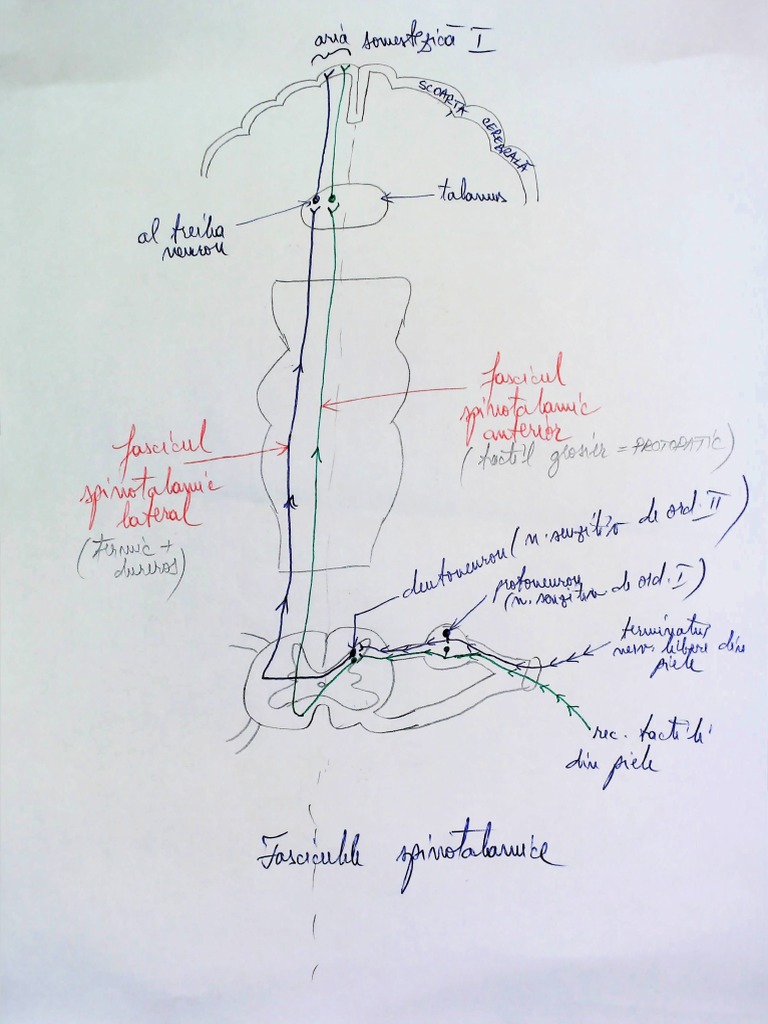 aria somestezică I
SCOARȚA
CEREBRALĂ
talamus
al treilea
neuron
fascicul
spinotalamic
anterior
(tactil grosier = PROTOPATIC)
fascicul
spinotalamic
lateral
(termic +
dureros)
deutoneuron (n. senzitiv de ord. II)
protoneuron
(n. senzitiv de ord. I)
terminațiuni
nerv. libere din
piele
rec. tactili
din piele
Fasciculele spinotalamice